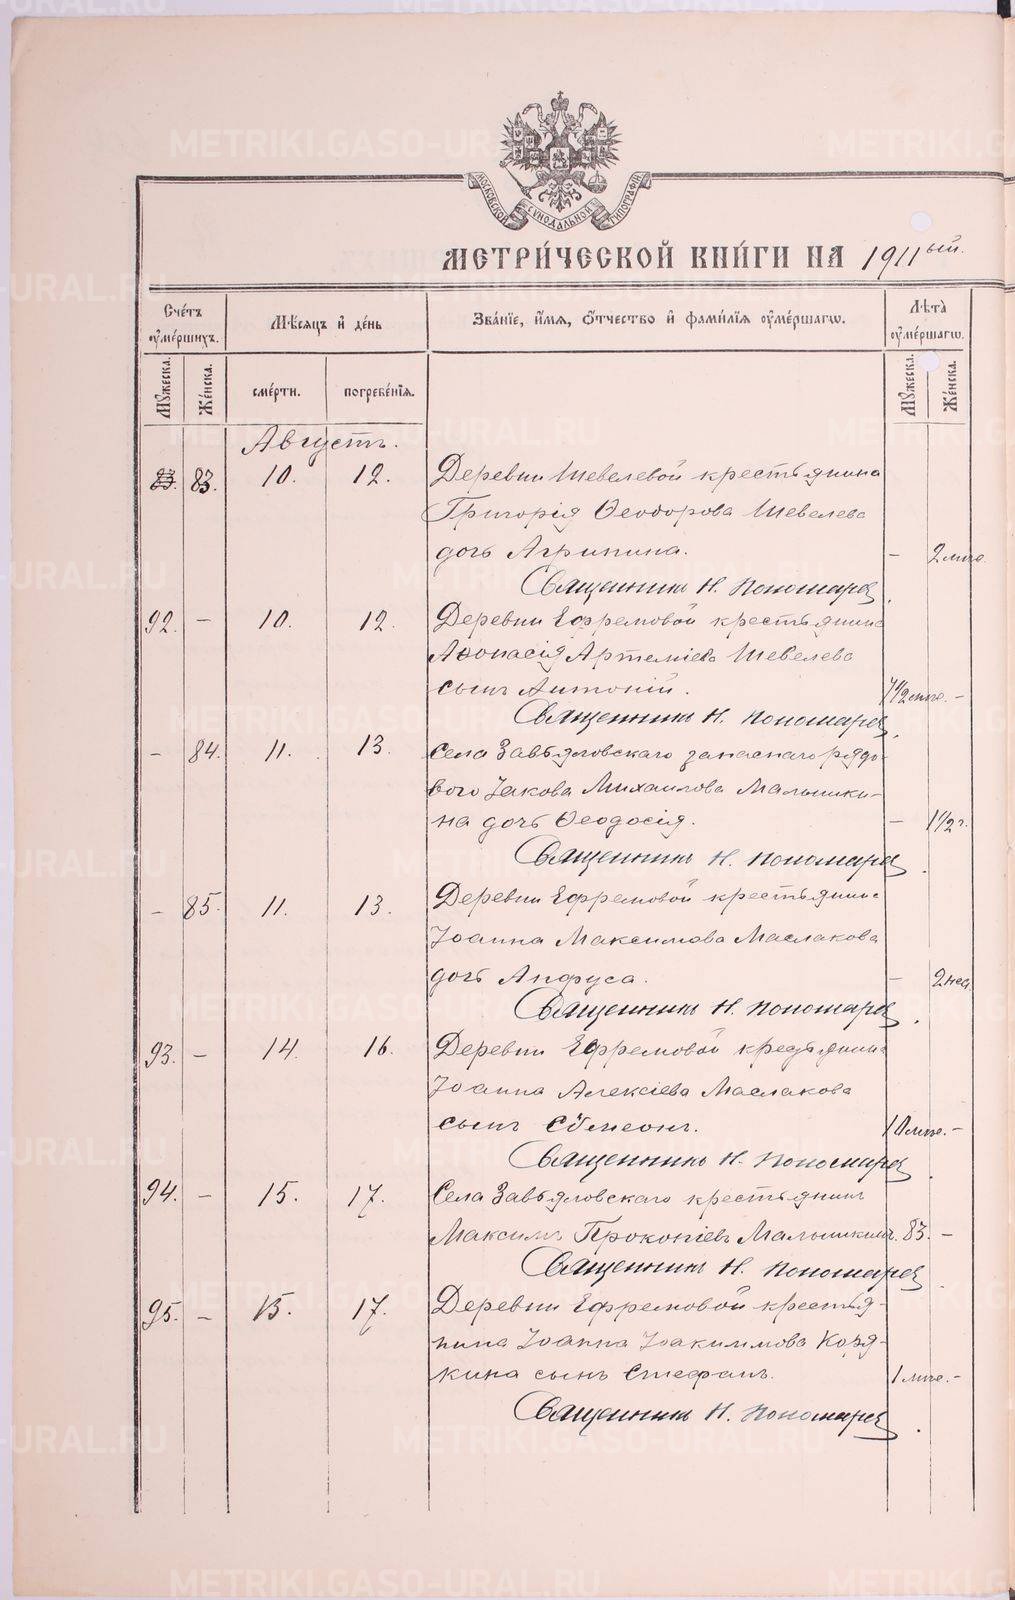 МОСКОВСКОЙ СѴНОДАЛЬНОЙ ТИПОГРАФІИ
МЕТРИ́ЧЕСКОЙ КНИ́ГИ НА 1911ый.
Сче́тъ ᲂу҆ме́ршихъ.
Мѣ́сяцъ и҆ де́нь
Зва́нїе, и҆́мя, ѻ҆́тчество и҆ фами́лїя ᲂу҆ме́ршагѡ.
Лѣ́та ᲂу҆ме́ршагѡ.
Мꙋ́жеска. Же́нска. сме́рти. погребе́нїя. Мꙋ́жеска. Же́нска.
Августъ.
83. 83. 10. 12. Деревни Шевелевой крестьянина
Григорія Ѳеодорова Шевелева
дочь Агрипина. – 2 мѣс.
Священникъ Н. Пономарев
92. – 10. 12. Деревни Ефремовой крестьянина
Аѳонасія Артеміева Шевелева
сынъ Антоній. –
Священникъ Н. Пономарев
– 84. 11. 13. Села Завьяловскаго запаснаго рядо-
вого Іакова Михаилова Малышки-
на дочь Ѳеодосія. – 1 1/2 г.
Священникъ Н. Пономарев
– 85. 11. 13. Деревни Ефремовой крестьянина
Іоанна Максимова Маслакова
дочь Анфуса. – 2 нед.
Священникъ Н. Пономарев
93. – 14. 16. Деревни Ефремовой крестьянина
Іоанна Алексіева Маслакова
сынъ Сѵмеонъ. 10 мѣс. –
Священникъ Н. Пономарев
94. – 15. 17. Села Завьяловскаго крестьянинъ
Максимъ Прокопіевъ Малышкинъ. 83. –
Священникъ Н. Пономарев
95. – 15. 17. Деревни Ефремовой крестья-
нина Іоанна Іоакимова Коря-
кина сынъ Стефанъ. 1 мѣс. –
Священникъ Н. Пономарев
METRIKI.GASO-URAL.RU